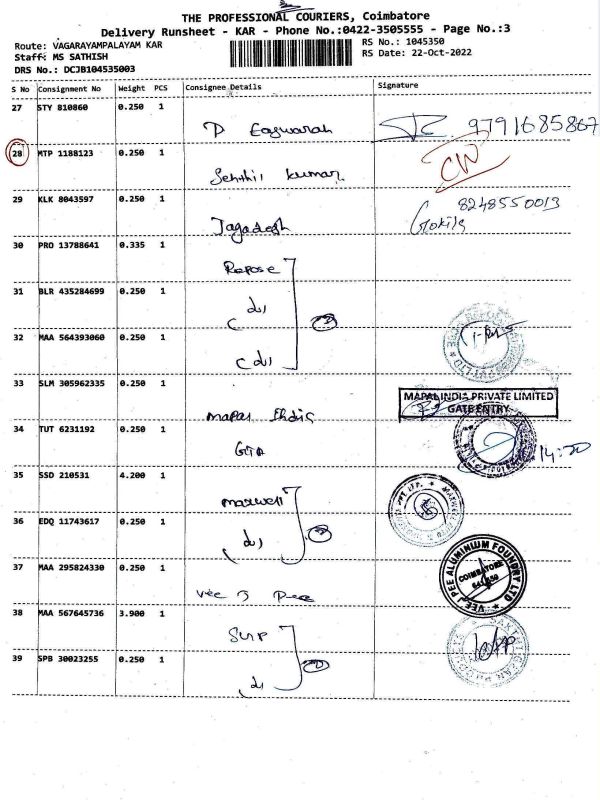 THE PROFESSIONAL COURIERS, Coimbatore
Delivery Runsheet - KAR - Phone No.:0422-3505555 - Page No.:3
Route: VAGARAYAMPALAYAM KAR
RS No.: 1045350
Staff: MS SATHISH
RS Date: 22-Oct-2022
DRS No.: DCJB104535003
S No Consignment No Weight PCS Consignee Details Signature
27 STY 810860 0.250 1
D Easwaran 9791685867
28 MTP 1188123 0.250 1
CW
Senthil kumar
29 KLK 8043597 0.250 1
8248550013
Jagadesh Gokila
30 PRO 13788641 0.335 1
Rapose
31 BLR 435284699 0.250 1
(d)
32 MAA 564393060 0.250 1
(d)
33 SLM 305962335 0.250 1
MAPAL INDIA PRIVATE LIMITED
GATE ENTRY
Mapal India
34 TUT 6231192 0.250 1
14:20
35 SSD 210531 4.200 1
Maxwell
36 EDQ 11743617 0.250 1
(d)
37 MAA 295824330 0.250 1
VEE PEE ALUMINIUM FOUNDRY LTD
COIMBATORE
Vee Pee
38 MAA 567645736 3.900 1
39 SPB 30023255 0.250 1